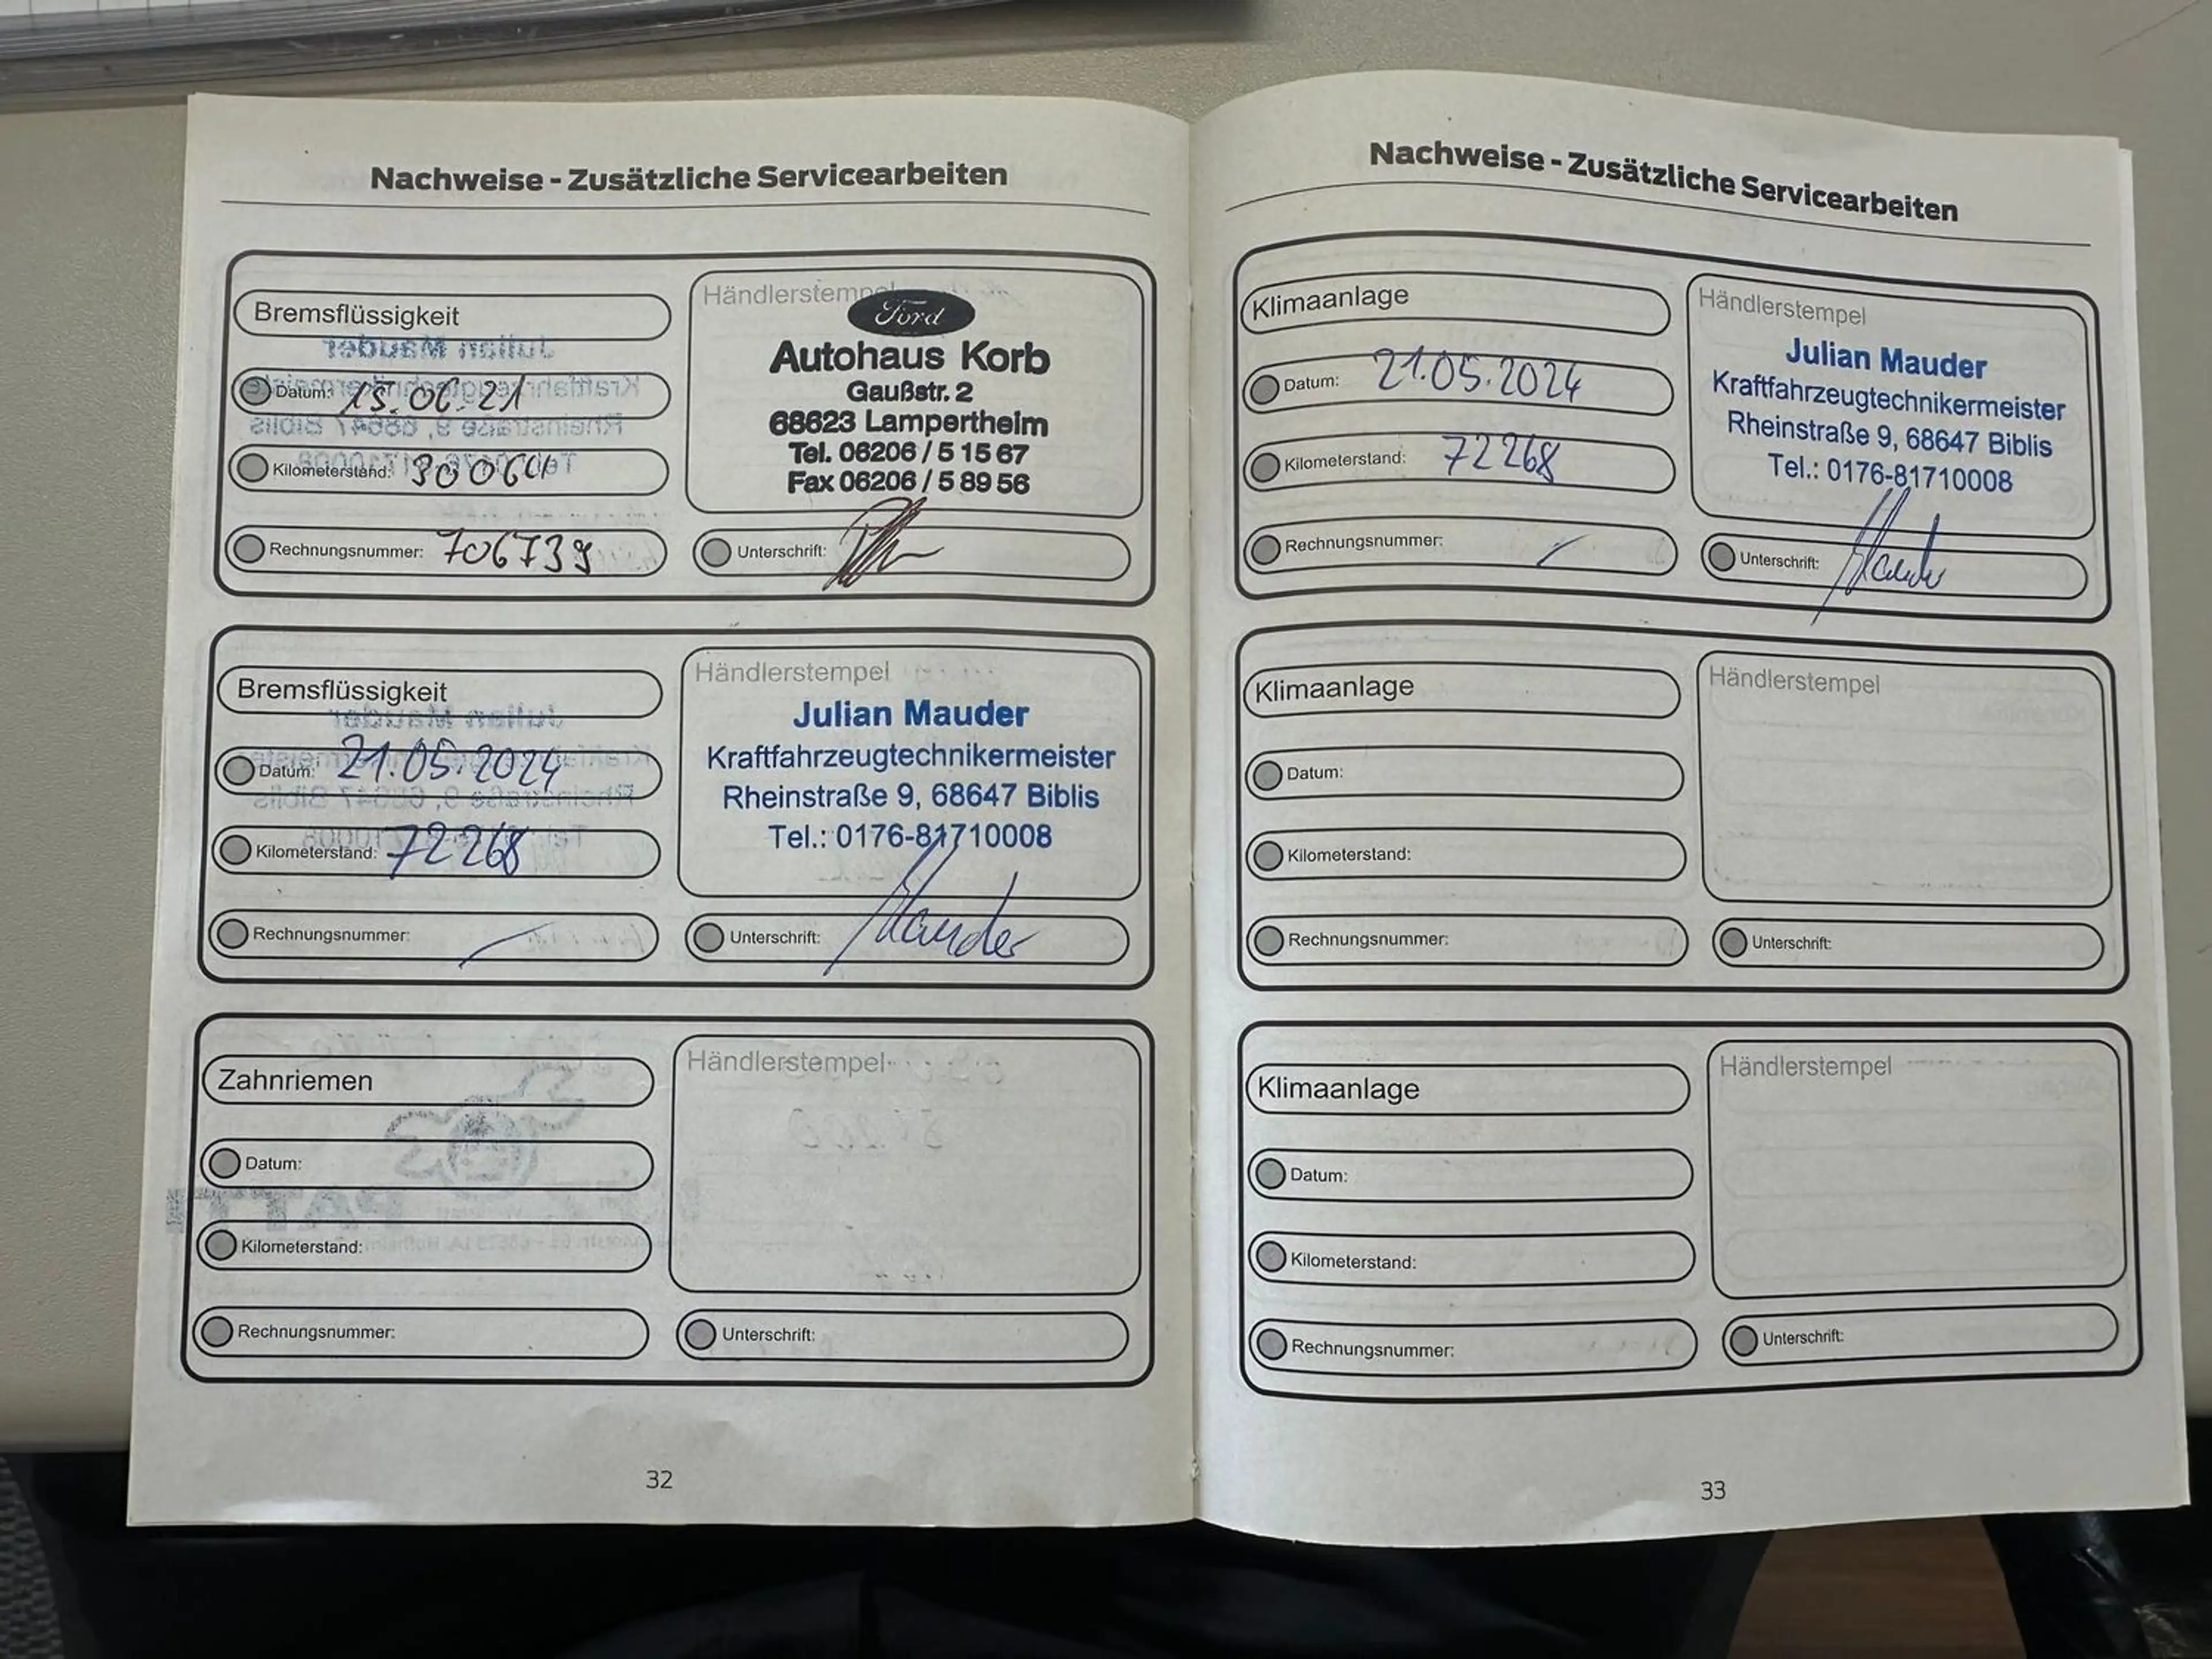 Nachweise - Zusätzliche Servicearbeiten
Bremsflüssigkeit
Datum: 15.06.21
Kilometerstand:
Rechnungsnummer: 706739
Händlerstempel
Ford
Autohaus Korb
Gaußstr. 2
68623 Lampertheim
Tel. 06206 / 5 15 67
Fax 06206 / 5 89 56
Unterschrift:
Bremsflüssigkeit
Datum: 21.05.2024
Kilometerstand: 72268
Rechnungsnummer:
Händlerstempel
Julian Mauder
Kraftfahrzeugtechnikermeister
Rheinstraße 9, 68647 Biblis
Tel.: 0176-81710008
Unterschrift: Mauder
Zahnriemen
Datum:
Kilometerstand:
Rechnungsnummer:
Händlerstempel
Unterschrift:
32
Nachweise - Zusätzliche Servicearbeiten
Klimaanlage
Datum: 21.05.2024
Kilometerstand: 72268
Rechnungsnummer:
Händlerstempel
Julian Mauder
Kraftfahrzeugtechnikermeister
Rheinstraße 9, 68647 Biblis
Tel.: 0176-81710008
Unterschrift: Mauder
Klimaanlage
Datum:
Kilometerstand:
Rechnungsnummer:
Händlerstempel
Unterschrift:
Klimaanlage
Datum:
Kilometerstand:
Rechnungsnummer:
Händlerstempel
Unterschrift:
33